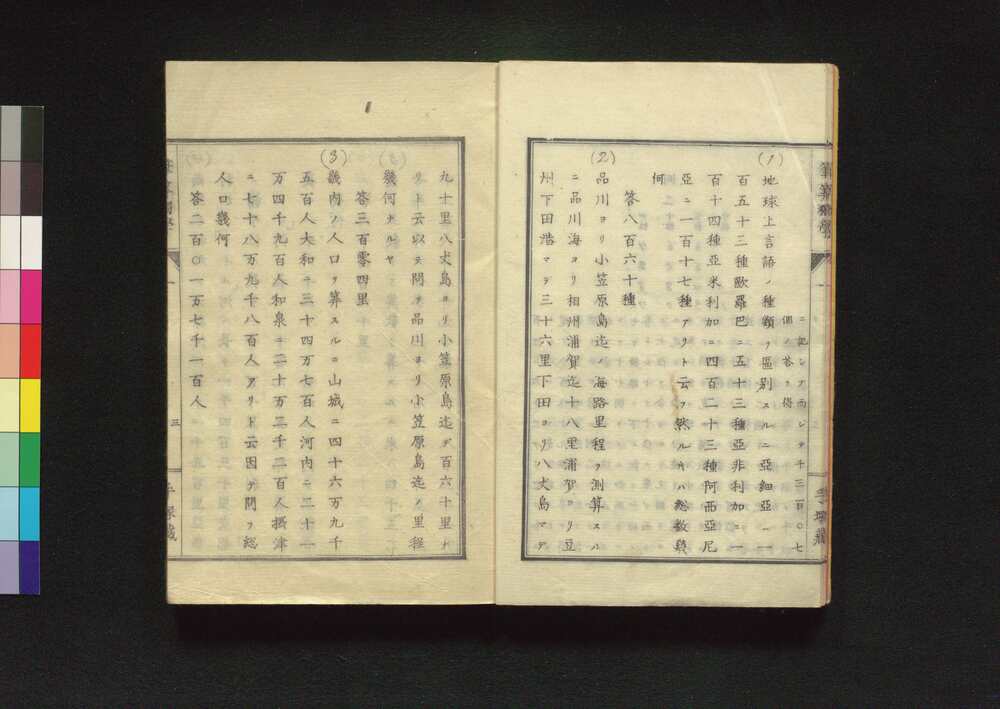 ニ記シア而シテ千三百〇七
個ノ答ヲ得
(1)
地球上言語ノ種類ヲ區別スルニ亞細亞ニ一
百五十三種歐羅巴ニ五十三種亞非利加ニ一
百十四種亞米利加ニ四百二十三種阿西亞尼
亞ニ一百十七種アリト云フ然ルキハ総数幾
何
答八百六十種
(2)
品川ヨリ小笠原島迄ノ海路里程ヲ測算スル
ニ品川海ヨリ相州浦賀迄十八里浦賀ヨリ豆
州下田港マデ三十六里下田ヨリ八丈島マデ
九十里八丈島ヨリ小笠原島迄デ百六十里ア
リト云以テ問フ品川ヨリ小笠原島迄ノ里程
幾何ナルヤ
答三百零四里
(3)
畿内ノ人口ヲ算スルニ山城ニ四十六万九千
五百人大和ニ三十四万七百人河内ニ二十一
万四千九百人和泉ニ二十万二千二百人摂津
ニ七十八万九千八百人アリト云因テ問フ総
人口幾何
答二百〇一万七千一百人
三